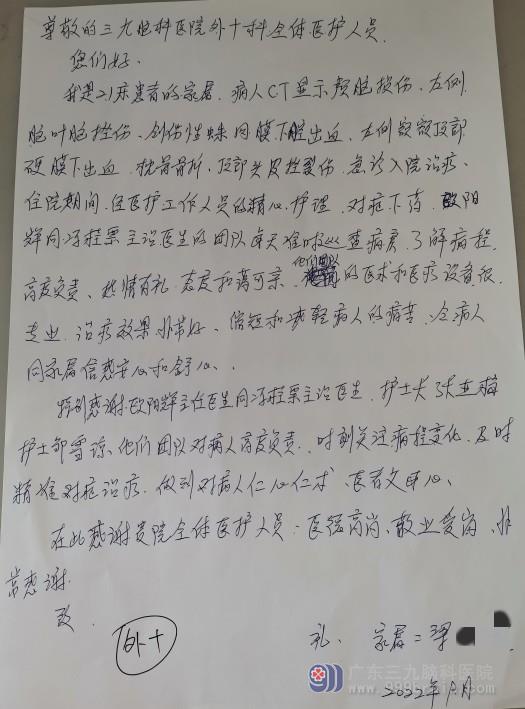 尊敬的三九脑科医院外十科全体医护人员
您们好、
我是21床患者的家属、病人CT显示颅脑损伤、左侧
脑叶脑挫伤、创伤性蛛网膜下腔出血、左侧额颞顶部
硬膜下出血、枕骨骨折、顶部头皮挫裂伤、急诊入院治疗、
住院期间、经医护工作人员的精心护理、对症下药、欧阳
辉同冯程票主治医生的团队每天准时查病房、了解病程、
高度负责、热情有礼、态度和蔼可亲、他们团队的医术和医疗设备很
专业、治疗效果非常好、缩短和减轻病人的病苦、令病人
同家属倍感安心和舒心、
特别感谢欧阳辉主任医生同冯程票主治医生、护士长张亚梅
护士邹雪谅、他们团队对病人高度负责、时刻关注病程变化、及时
精准对症治疗、做到对病人仁心仁术、医者父母心、
在此感谢贵院全体医护人员:医德高尚、敬业爱岗、非
常感谢
致
外十
礼、 家属:
2022年 月
广东三九脑科医院